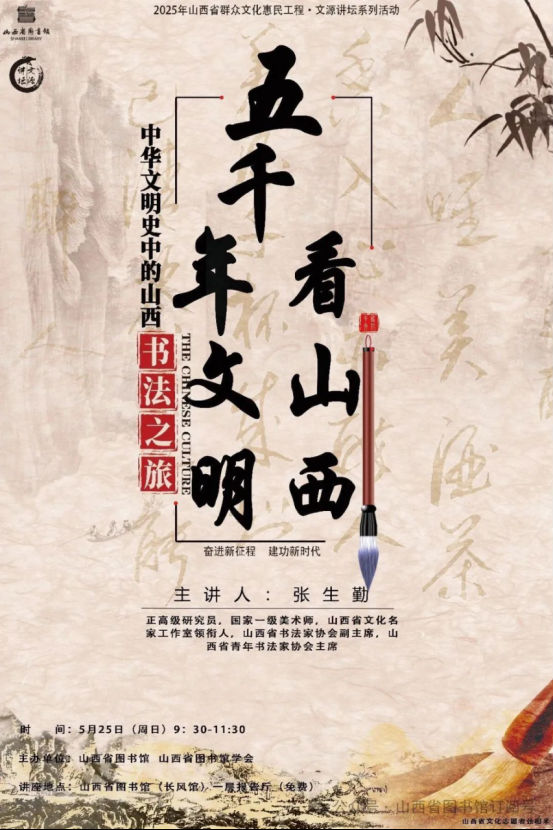 2025年山西省群众文化惠民工程·文源讲坛系列活动
山西省图书馆
文源讲坛
五千年文明
看山西
中华文明史中的山西
书法之旅
THE CHINESE CULTURE
奋进新征程 建功新时代
主讲人：张生勤
正高级研究员，国家一级美术师，山西省文化名
家工作室领衔人，山西省书法家协会副主席，山
西省青年书法家协会主席
时 间：5月25日（周日）9：30-11:30
主办单位：山西省图书馆 山西省图书馆学会
讲座地点：山西省图书馆（长风馆）一层报告厅（免费）
公众号·山西省图书馆订阅号